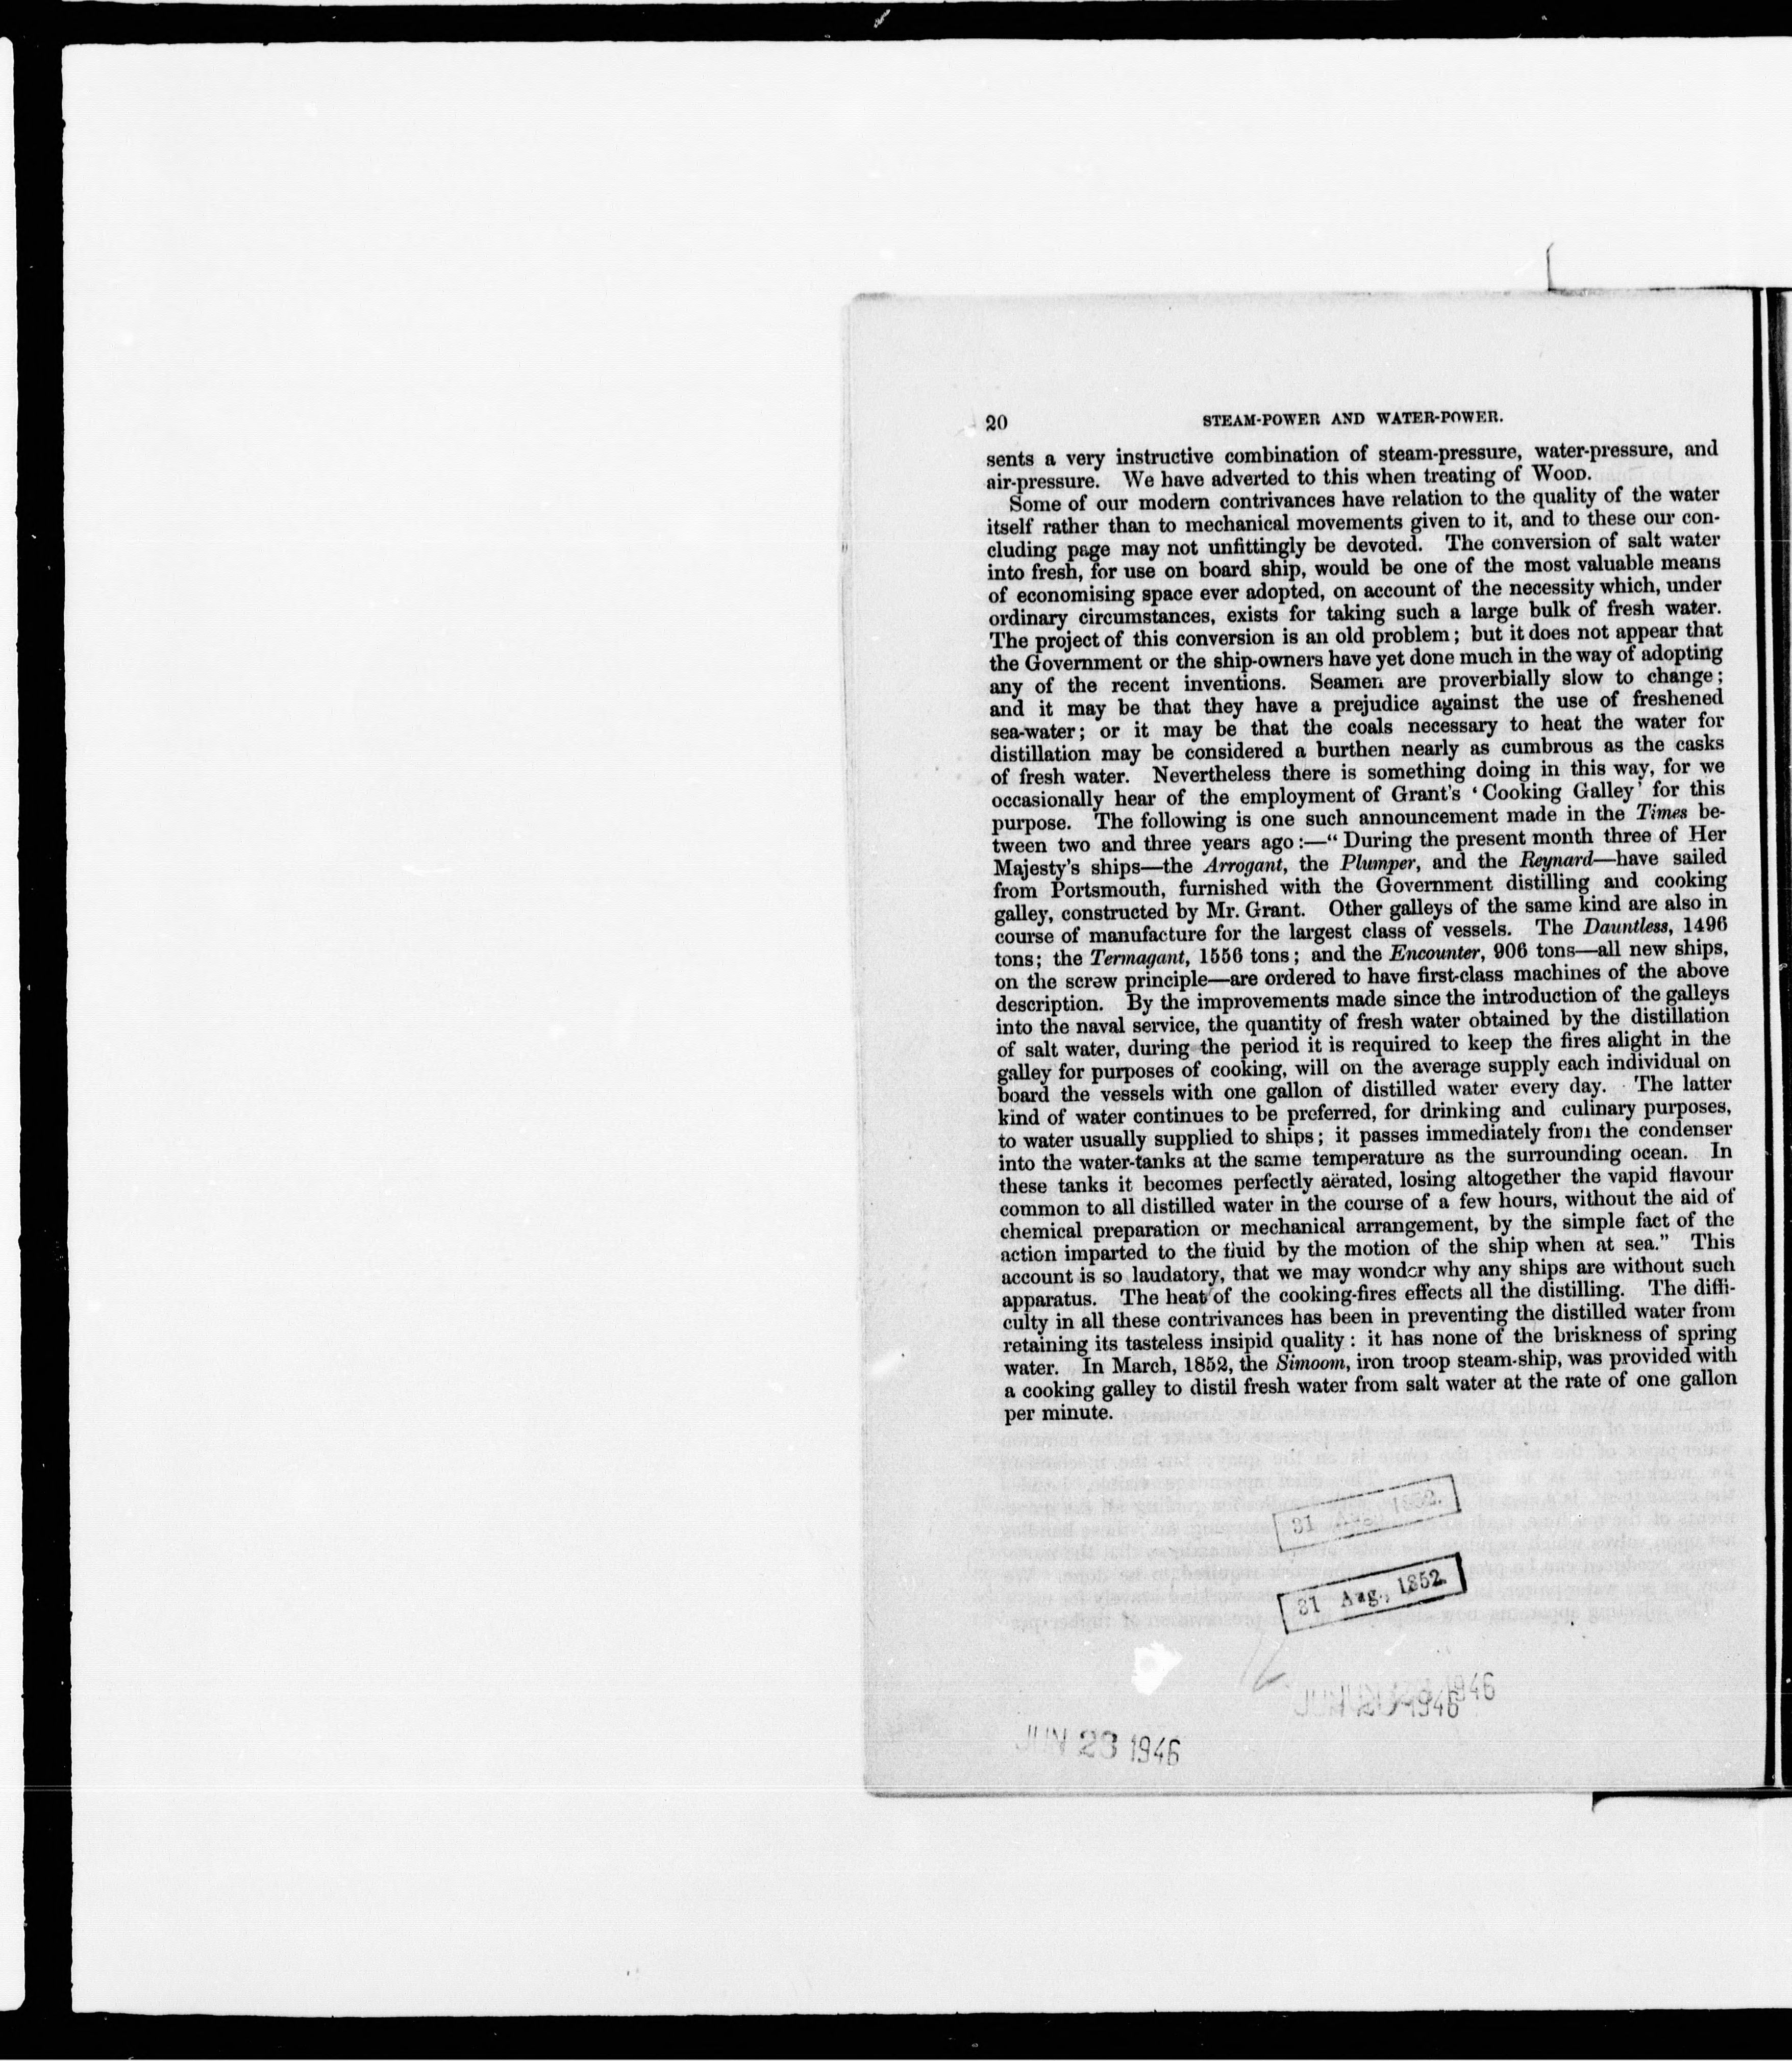 20 STEAM-POWER AND WATER-POWER.
sents a very instructive combination of steam-pressure, water-pressure, and
air-pressure. We have adverted to this when treating of WOOD.
Some of our modern contrivances have relation to the quality of the water
itself rather than to mechanical movements given to it, and to these our con-
cluding page may not unfittingly be devoted. The conversion of salt water
into fresh, for use on board ship, would be one of the most valuable means
of economising space ever adopted, on account of the necessity which, under
ordinary circumstances, exists for taking such a large bulk of fresh water.
The project of this conversion is an old problem; but it does not appear that
the Government or the ship-owners have yet done much in the way of adopting
any of the recent inventions. Seamen are proverbially slow to change;
and it may be that they have a prejudice against the use of freshened
sea-water; or it may be that the coals necessary to heat the water for
distillation may be considered a burthen nearly as cumbrous as the casks
of fresh water. Nevertheless there is something doing in this way, for we
occasionally hear of the employment of Grant's ‘Cooking Galley’ for this
purpose. The following is one such announcement made in the Times be-
tween two and three years ago:—“During the present month three of Her
Majesty's ships—the Arrogant, the Plumper, and the Reynard—have sailed
from Portsmouth, furnished with the Government distilling and cooking
galley, constructed by Mr. Grant. Other galleys of the same kind are also in
course of manufacture for the largest class of vessels. The Dauntless, 1496
tons; the Termagant, 1556 tons; and the Encounter, 906 tons—all new ships,
on the screw principle—are ordered to have first-class machines of the above
description. By the improvements made since the introduction of the galleys
into the naval service, the quantity of fresh water obtained by the distillation
of salt water, during the period it is required to keep the fires alight in the
galley for purposes of cooking, will on the average supply each individual on
board the vessels with one gallon of distilled water every day. The latter
kind of water continues to be preferred, for drinking and culinary purposes,
to water usually supplied to ships; it passes immediately from the condenser
into the water-tanks at the same temperature as the surrounding ocean. In
these tanks it becomes perfectly aërated, losing altogether the vapid flavour
common to all distilled water in the course of a few hours, without the aid of
chemical preparation or mechanical arrangement, by the simple fact of the
action imparted to the fluid by the motion of the ship when at sea.” This
account is so laudatory, that we may wonder why any ships are without such
apparatus. The heat of the cooking-fires effects all the distilling. The diffi-
culty in all these contrivances has been in preventing the distilled water from
retaining its tasteless insipid quality: it has none of the briskness of spring
water. In March, 1852, the Simoom, iron troop steam-ship, was provided with
a cooking galley to distil fresh water from salt water at the rate of one gallon
per minute.
31 Aug. 1852.
31 Aug., 1852.
1946
1946
JUN 28 1946